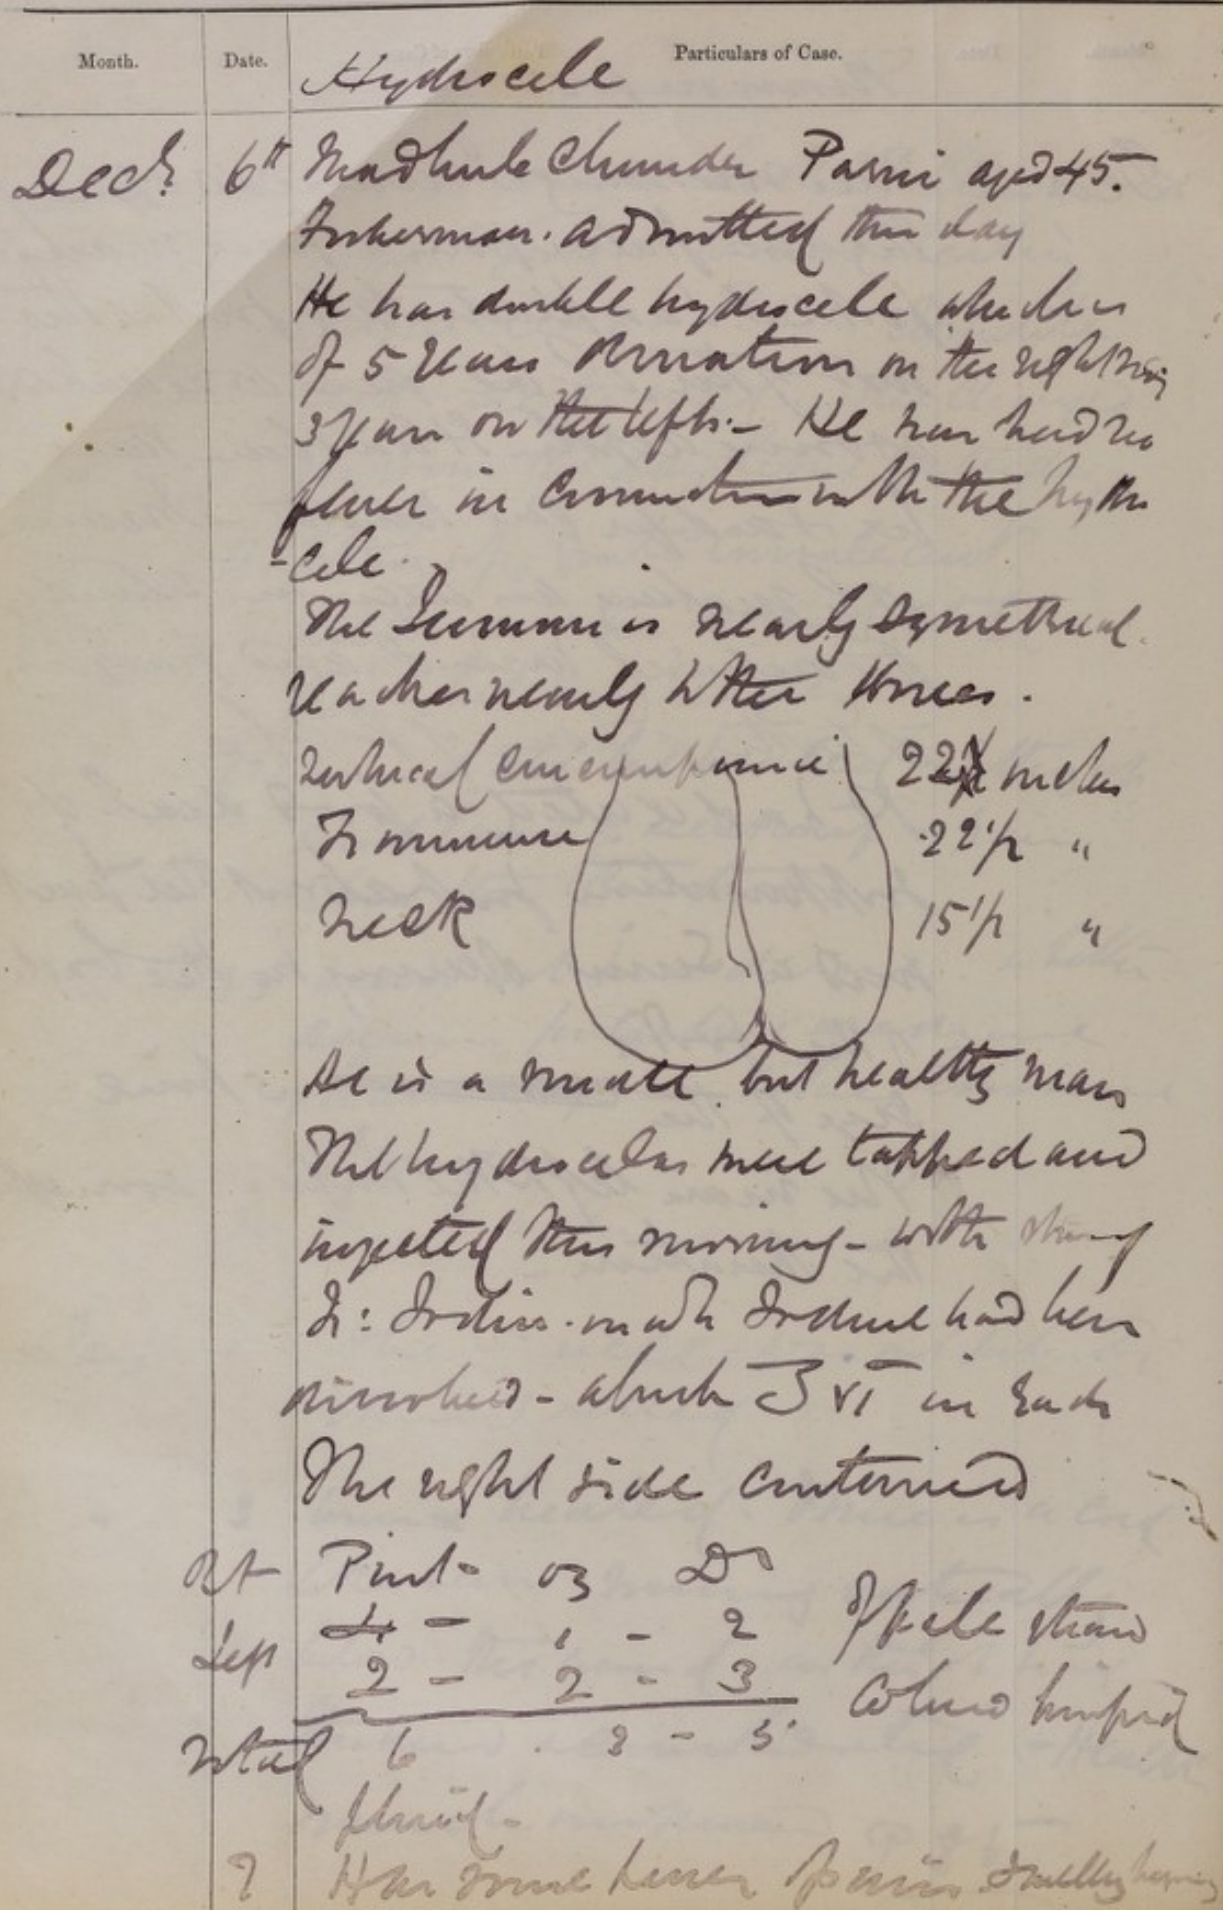 Month. Date. Particulars of Case.
Hydrocele
Decr 6th Madhub Chunder aged 45.
Fisherman. admitted this day
He has double hydrocele which is
of 5 years duration on the right &
3 years on the left. – He has had no
fever in connection with the hydro
-cele.
The is nearly symetrical
reaches nearly to the knees.
Vertical circumference 22 inches
Transverse 22 1/2 "
neck 15 1/2 "
He is a but healthy man
The hydroceles were tapped and
injected this morning – with strong
Tr: Iodine. in wh Iodine had been
dissolved – about ʒ vi in each
The right side contained
Rt Pint – oz Dr
4 – 1 – 2 of pale straw
Left 2 – 2 – 3 colured limpid
Total 6 . 3 – 5
fluid –
7 Has some fever & pain